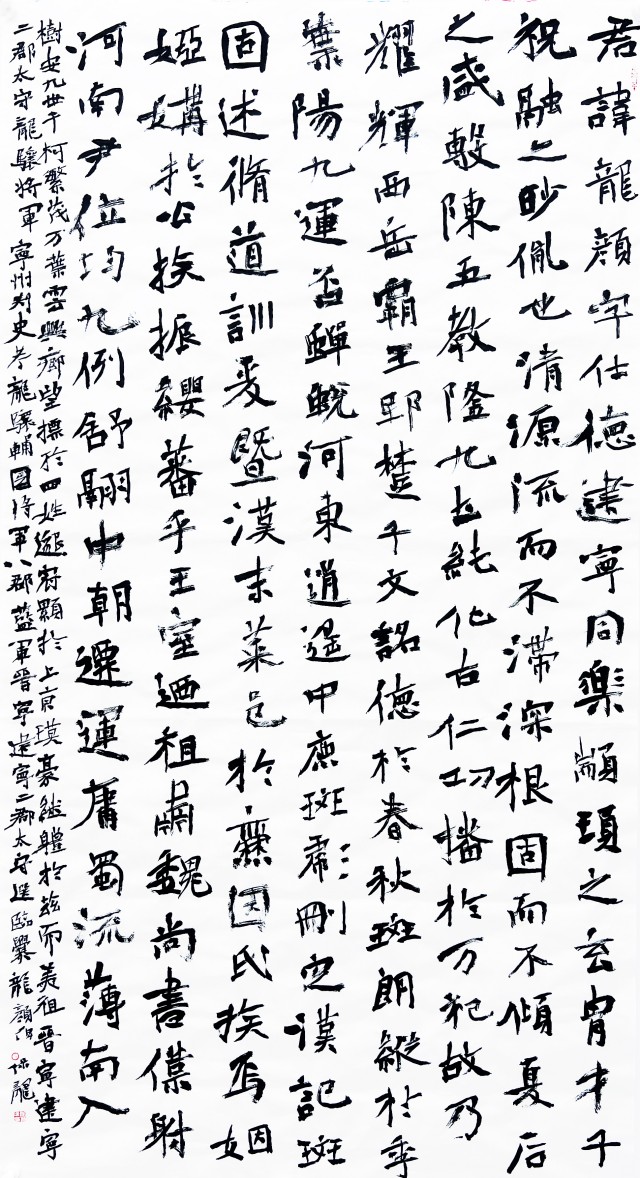 君諱龍顏字仕德建寧同樂顓頊之玄冑才子
祝融之眇胤也清源流而不滯深根固而不傾夏后
之盛敷陳五教隆九土純化古仁功播於万祀故乃
耀輝西岳霸王郢楚子文詺德於春秋斑朗縱於季
葉陽九運否蟬蛻河東逍遙中原斑彪刪定漢記斑
固述脩道訓爰暨漢末菜邑於爨因氏族焉姻
婭媾於公族振纓蕃乎王室迺祖肅魏尚書僕射
河南尹位均九例舒翮中朝遷運庸蜀流薄南入
樹安九世千柯繁茂万葉雲興鄉望標於四姓邈冠顯於上京瑛豪繼體於茲而美祖晉寧建寧
二郡太守龍驤將軍寧州刺史考龍驤輔國將軍八郡監軍晉寧建寧二郡太守追臨爨龍顏碑 保龍